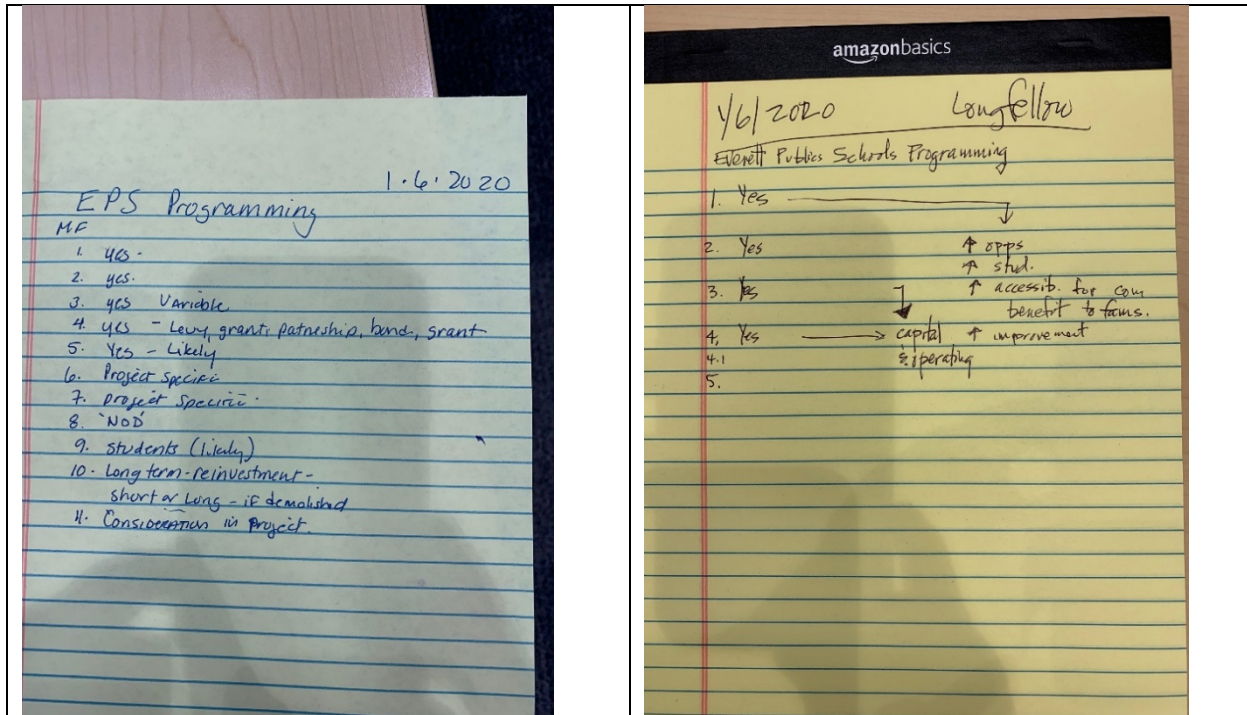 1.6.2020
EPS Programming
MF
1. yes.
2. yes.
3. yes Variable
4. yes - Levy, grants, patneship, bond, grant
5. Yes - Likely
6. Project specific
7. project specific.
8. 'NOD'
9. students (likely)
10. Long term - reinvestment -
short or Long - if demolished
11. Consideration in project.
amazonbasics
1/6/2020 Longfellow
Everett Publics Schools Programming
1. Yes
2. Yes ↑ opps
↑ stud.
3. Yes ↑ accessib. for com
benefit to fams.
4. Yes → capital ↑ improvement
4.1 & operating
5.